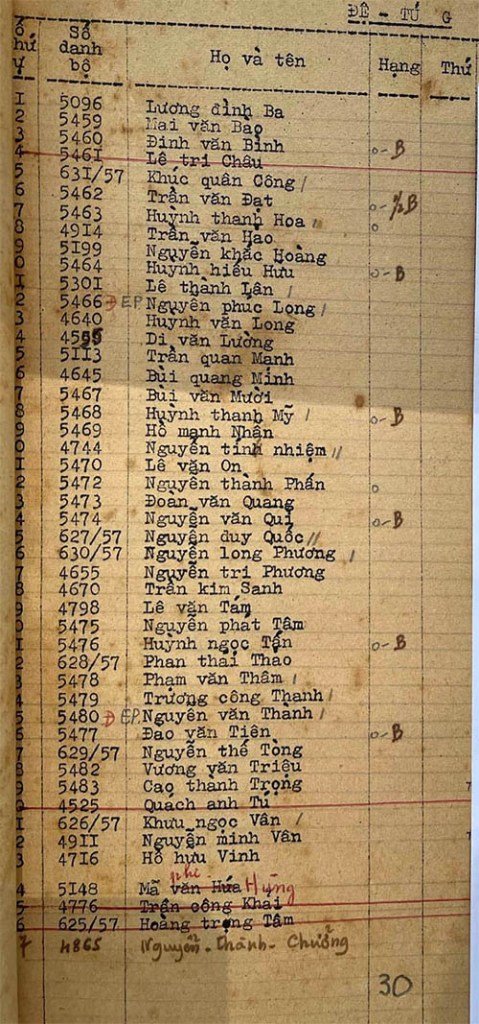 ĐỆ - TỨ G
Số danh bộ Họ và tên Hạng Thứ
I 5096 Lương đình Ba
2 5459 Mai văn Bảo
3 5460 Đinh văn Bình o-B
4 546I Lê tri Châu
5 63I/57 Khúc quân Công /
6 5462 Trần văn Đạt o-½B
7 5463 Huỳnh thanh Hoa // o
8 49I4 Trần văn Hao
9 5I99 Nguyễn khắc Hoàng
0 5464 Huỳnh hiếu Hưu o-B
I 530I Lê thành Lân /
2 5466 Đ EP Nguyễn phúc Long /
3 4640 Huỳnh văn Long
4 4555 Di văn Lường
5 5II3 Trần quan Manh
6 4645 Bùi quang Minh
7 5467 Bùi văn Mười
8 5468 Huỳnh thanh Mỹ / o-B
9 5469 Hồ mạnh Nhận
0 4744 Nguyễn tinh nhiệm //
I 5470 Lê văn On
2 5472 Nguyễn thành Phấn o
3 5473 Đoàn văn Quang
4 5474 Nguyễn văn Quí o-B
5 627/57 Nguyễn duy Quốc //
6 630/57 Nguyễn long Phương /
7 4655 Nguyễn tri Phương
8 4670 Trần kim Sanh
9 4798 Lê văn Tám
0 5475 Nguyễn phát Tâm
I 5476 Huỳnh ngọc Tấn o-B
2 628/57 Phan thái Thao
3 5478 Phạm văn Thâm /
4 5479 Trương công Thanh /
5 5480 Đ EP. Nguyễn văn Thành /
6 5477 Đao văn Tiên o-B
7 629/57 Nguyễn thế Tòng
8 5482 Vương văn Triệu
9 5483 Cao thành Trọng
0 4525 Quách anh Tú
I 626/57 Khưu ngọc Vân /
2 49II Nguyễn minh Vân
3 47I6 Hồ hưu Vinh
phi
4 5I48 Mã văn Hứa Hùng
5 4776 Trần công Khai
6 625/57 Hoàng trọng Tâm
7 4865 Nguyễn - Thành - Chưởng
30